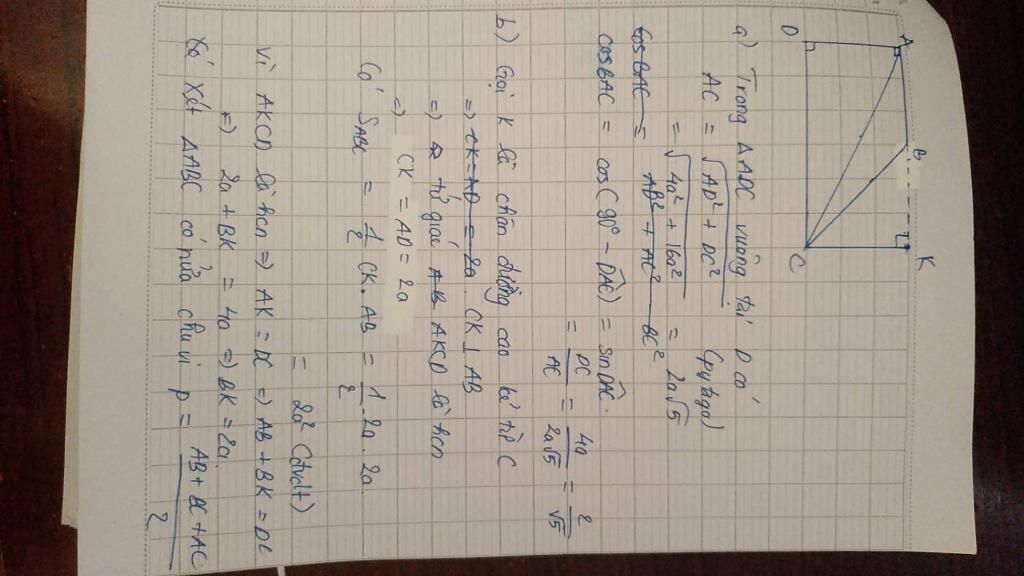 A
B
K
D
C
a) Trong ΔADC vuông tại D có
AC = √(AD² + DC²) (pytago)
= √(4a² + 16a²) = 2a√5
cosBAC = AB² + AC² - BC²
cosBAC = cos(90° - DAC) = sinDAC.
= DC/AC = 4a/2a√5 = 2/√5
b) Gọi K là chân đường cao kẻ từ C
=> CK = AD = 2a. CK ⊥ AB
=> tứ giác AKCD là hcn
=> CK = AD = 2a
Có S_ABC = 1/2 CK. AB = 1/2 . 2a . 2a
= 2a² (đvdt)
Vì AKCD là hcn => AK = DC => AB + BK = DC
=> 2a + BK = 4a => BK = 2a
Xét ΔABC có nửa chu vi p = (AB + BC + AC)/2